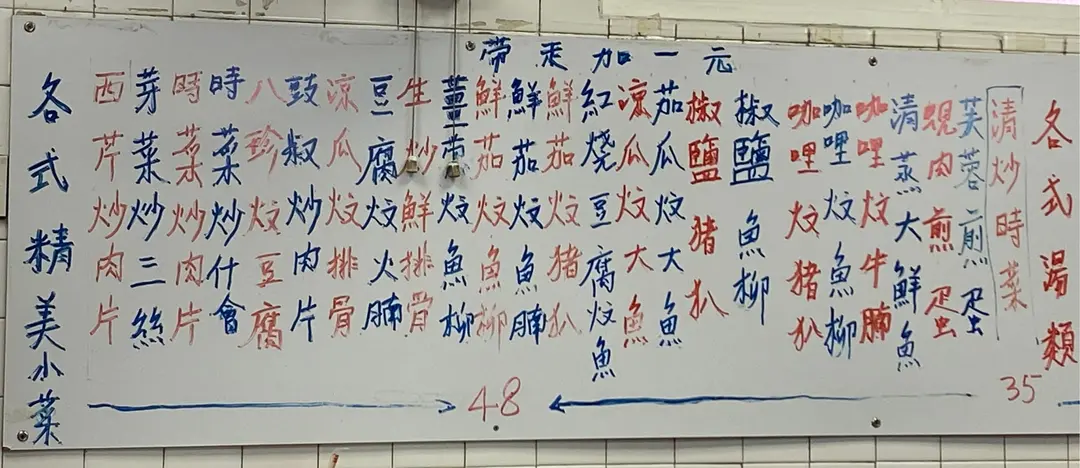 帶走加一元
各式精美小菜
西芹炒肉片
芽菜炒三絲
時菜炒肉片
時菜炒什會
八珍炆豆腐
鼓椒炒肉片
涼瓜炆排骨
豆腐炆火腩
生炒鮮排骨
薑炆魚柳
鮮茄炆魚柳
鮮茄炆魚腩
鮮茄炆猪扒
紅燒豆腐炆魚
涼瓜炆大魚
茄瓜炆大魚
椒鹽猪扒
椒鹽魚柳
咖哩炆猪扒
咖哩炆魚柳
咖哩炆牛腩
清蒸大鮮魚
蜆肉煎疍
芙蓉煎疍
48
清炒時菜
35
各式湯類